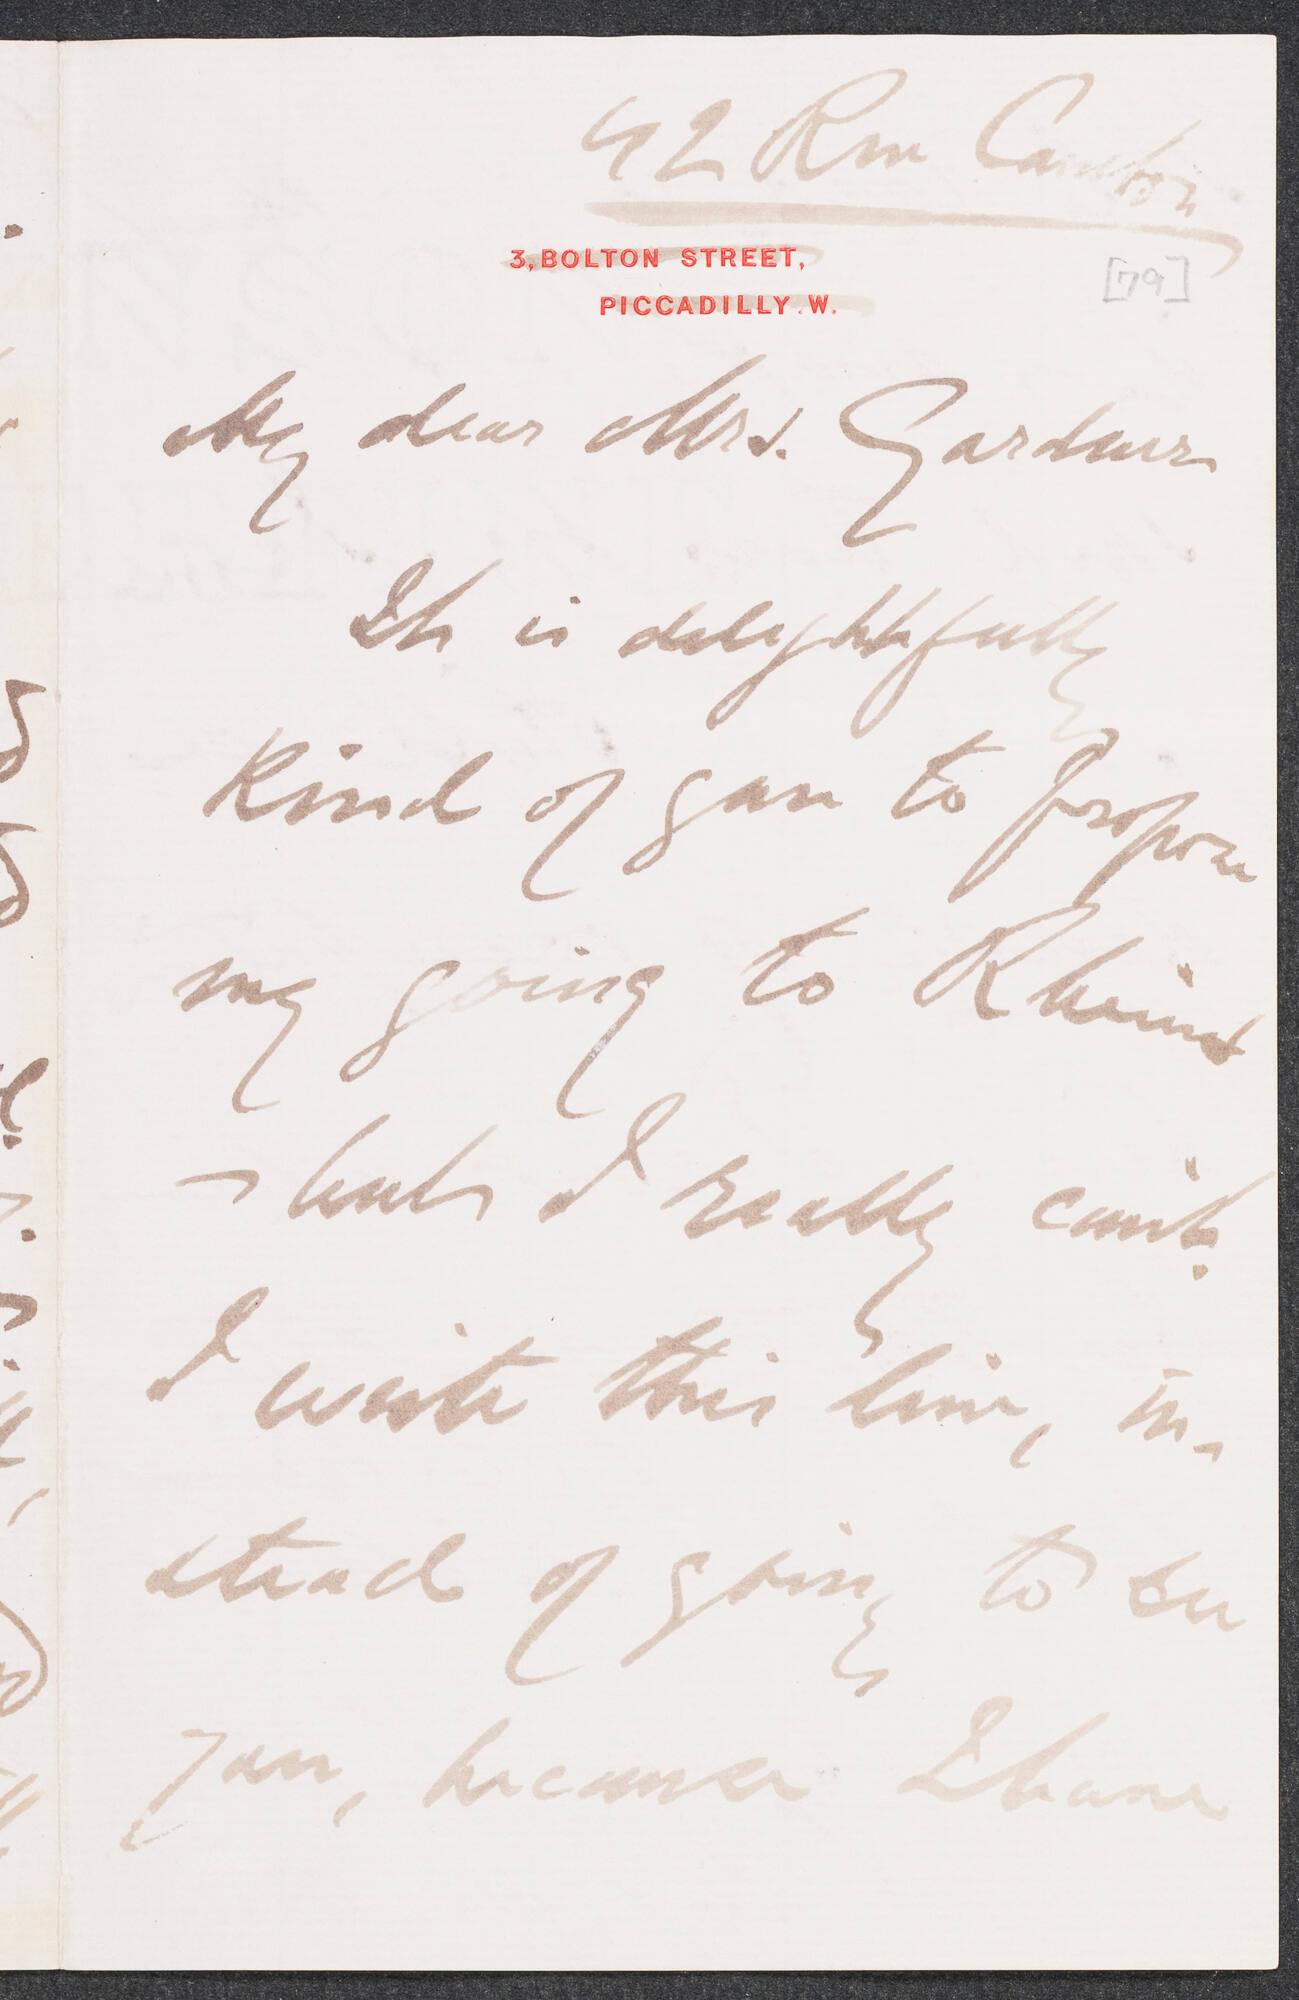 42 Rue Cambon
3, BOLTON STREET,
PICCADILLY. W.
[79]
My dear Mrs. Gardner
It is delightfully
kind of you to propose
my going to Rheims
– but I really can't.
I write this line, in-
stead of going to see
you, because I have